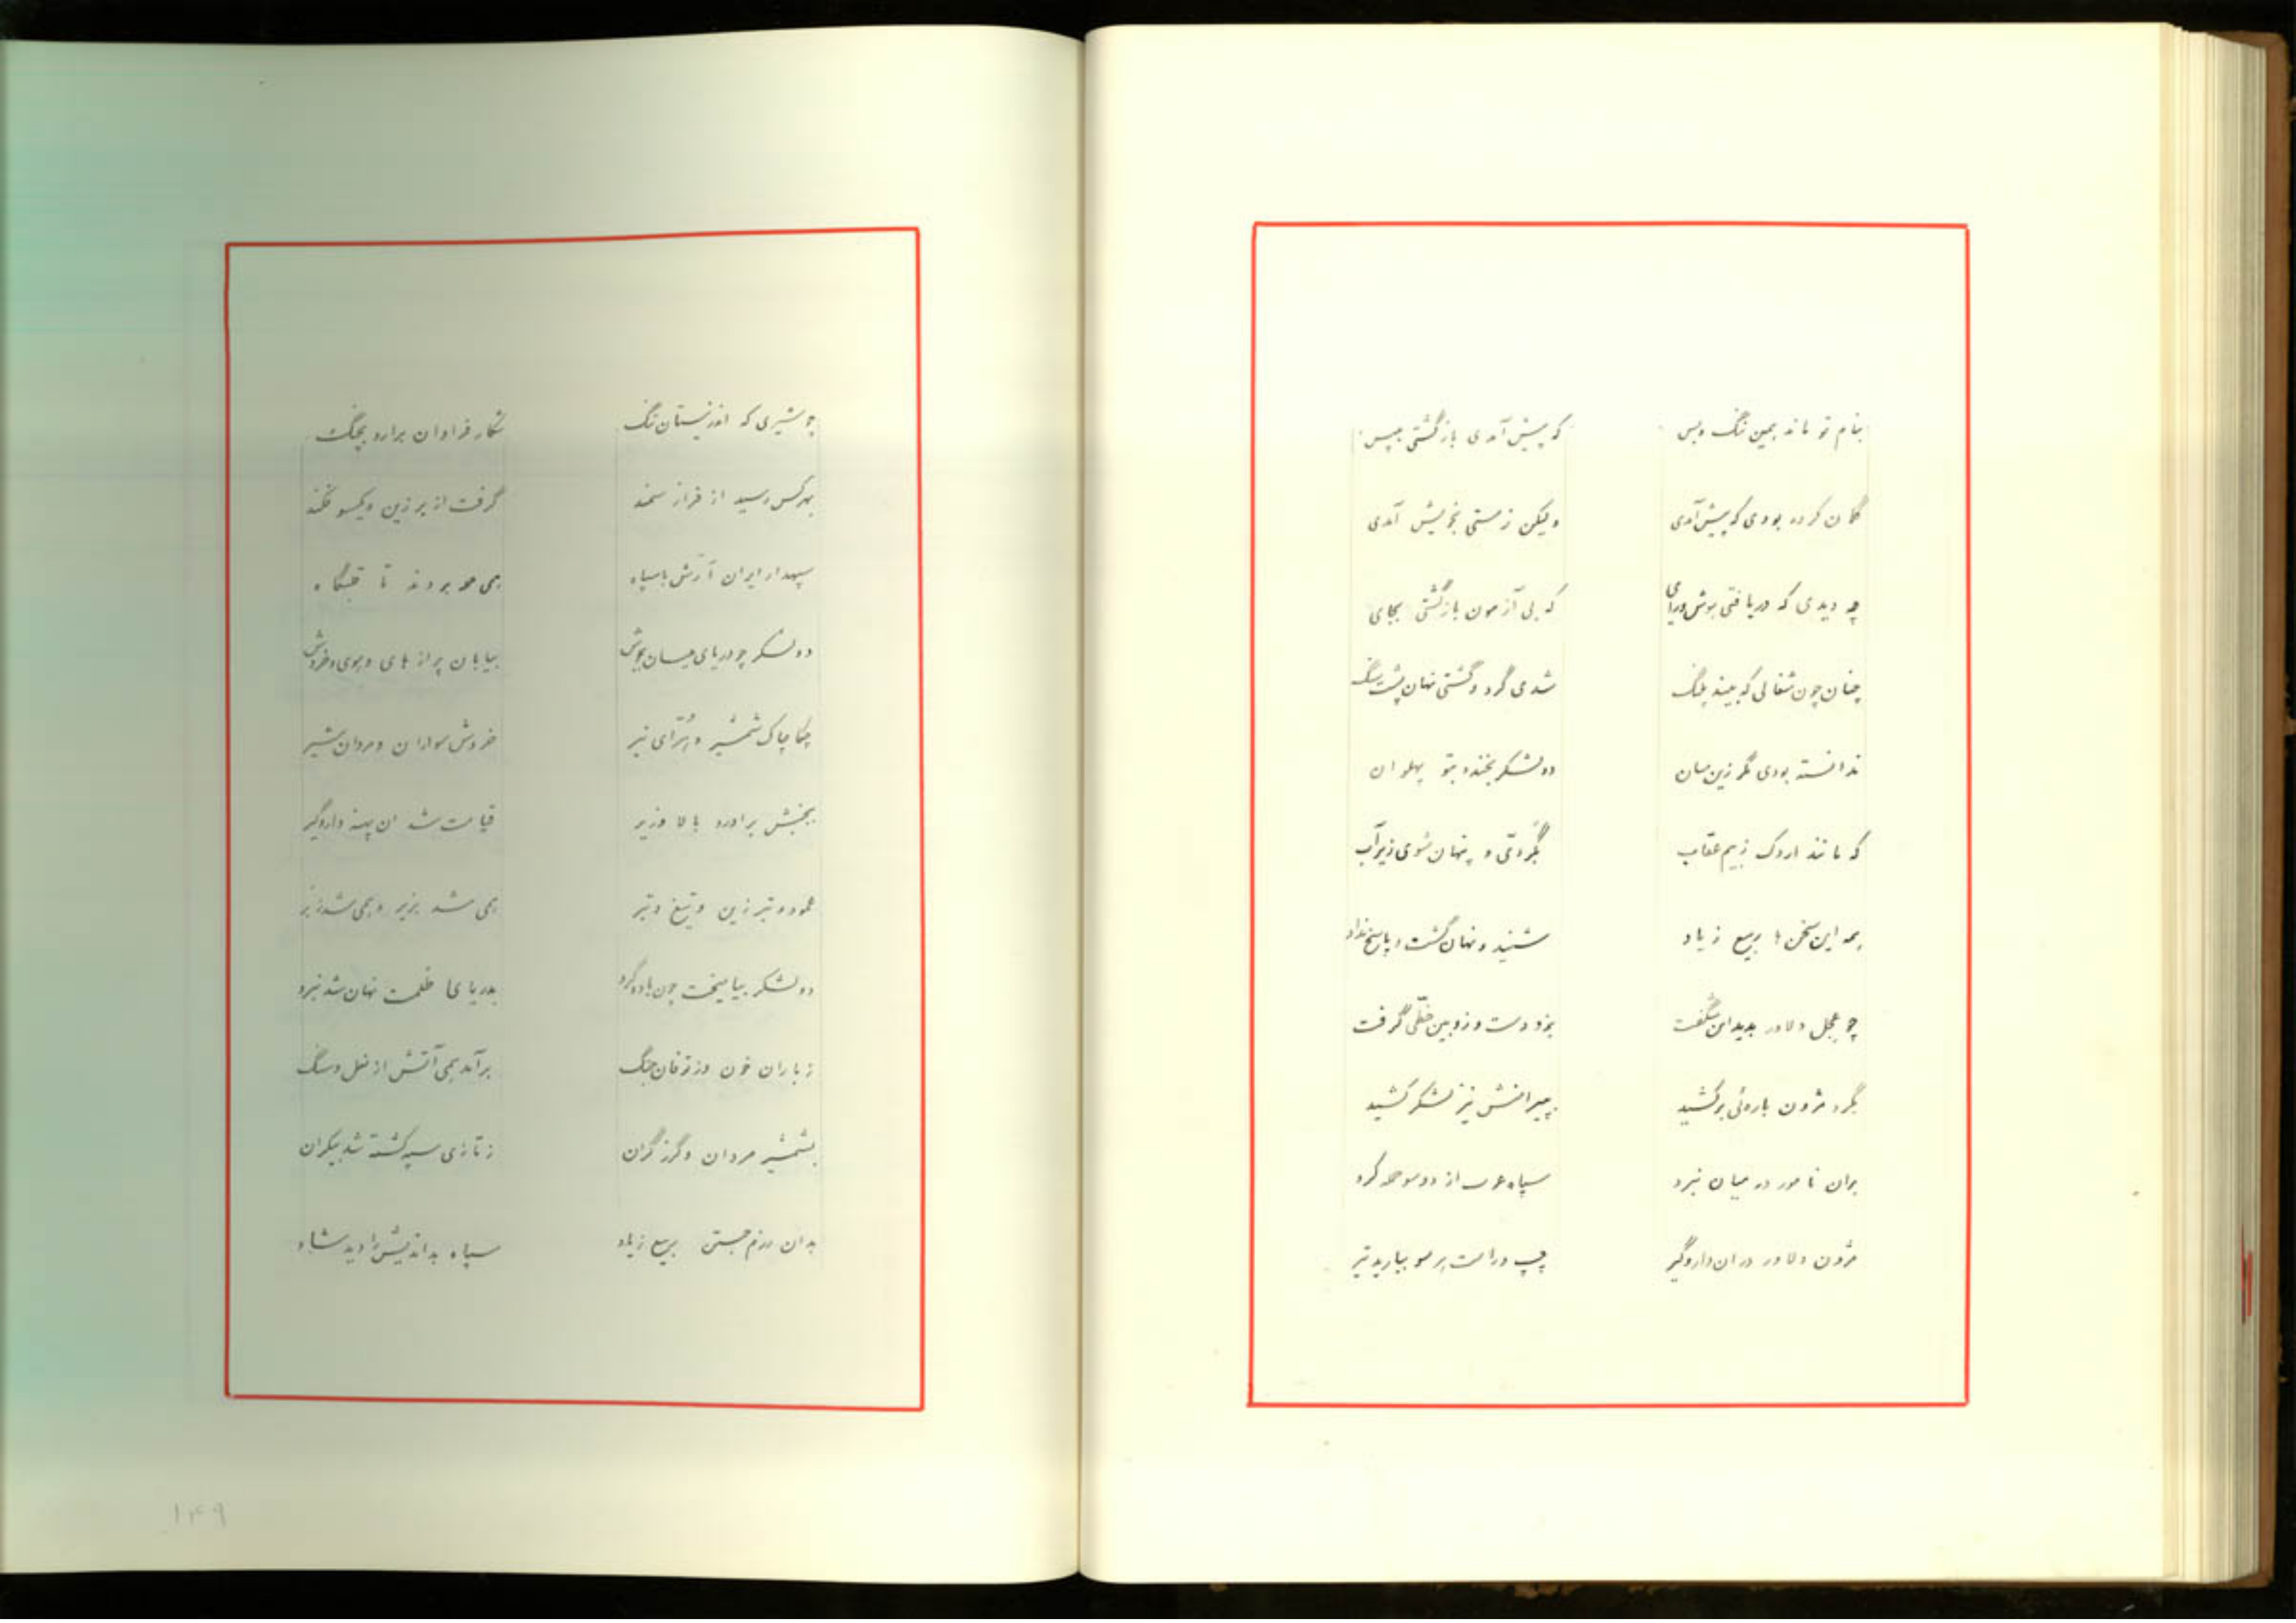 بنام تو ماند همین ننگ و بس
که پیش آمدی بازگشتی بپس
گمان کرده بودی که پیش آمدی
ولیکن زمستی بخویش آمدی
چه دیدی که دریافتی هوش و رای
که بی آزمون بازگشتی بجای
چنان چون شغالی که بیند پلنگ
شدی گرد و گشتی نهان پشت سنگ
ندانسته بودی مگر زین میان
دو لشکر بخندد بتو پهلوان
که مانند اردک ز بیم عقاب
بگردی و پنهان شوی زیر آب
همه این سخن‌ها ربیع زیاد
شنید و نهان گشت و پاسخ نداد
چو عجل دلاور بدید این شگفت
بزد دست و زوبین خطّی گرفت
بگرد مژون باره‌ئی برکشید
پیرامنش نیز لشکر کشید
بران نامور در میان نبرد
سپاه عرب از دو سو حمله کرد
مژون دلاور در ان داروگیر
چپ و راست بر سو ببارید تیر
چو شیری که اندر نیستان تنگ
شکار فراوان برارد بچنگ
بهر کس رسید از فراز سمند
گرفت از بر زین و یکسو فکند
سپهدار ایران آرش با سپاه
همی حمله بردند تا قلبگاه
دو لشکر چو دریای جیسان بجوش
بیابان پر از های و هوی و خروش
چکاچاک شمشیر و برّای تیر
خروش سواران و مردان شیر
بجنبش براورد بالا و زیر
قیامت شد ان پهنه داروگیر
عمود و تبرزین و تیغ و تبر
همی شد بزیر و همی شد زبر
دو لشکر بیامیخت چون باد و گرد
بدریای ظلمت نهان شد نبرد
ز باران خون وز توفان جنگ
برآمد همی آتش از نعل و سنگ
بشمشیر مردان و گرز گران
ز تازی سپه کشته شد بیکران
بدان رزم جستن ربیع زیاد
سپاه بداندیش را دید شاد
۱۴۹